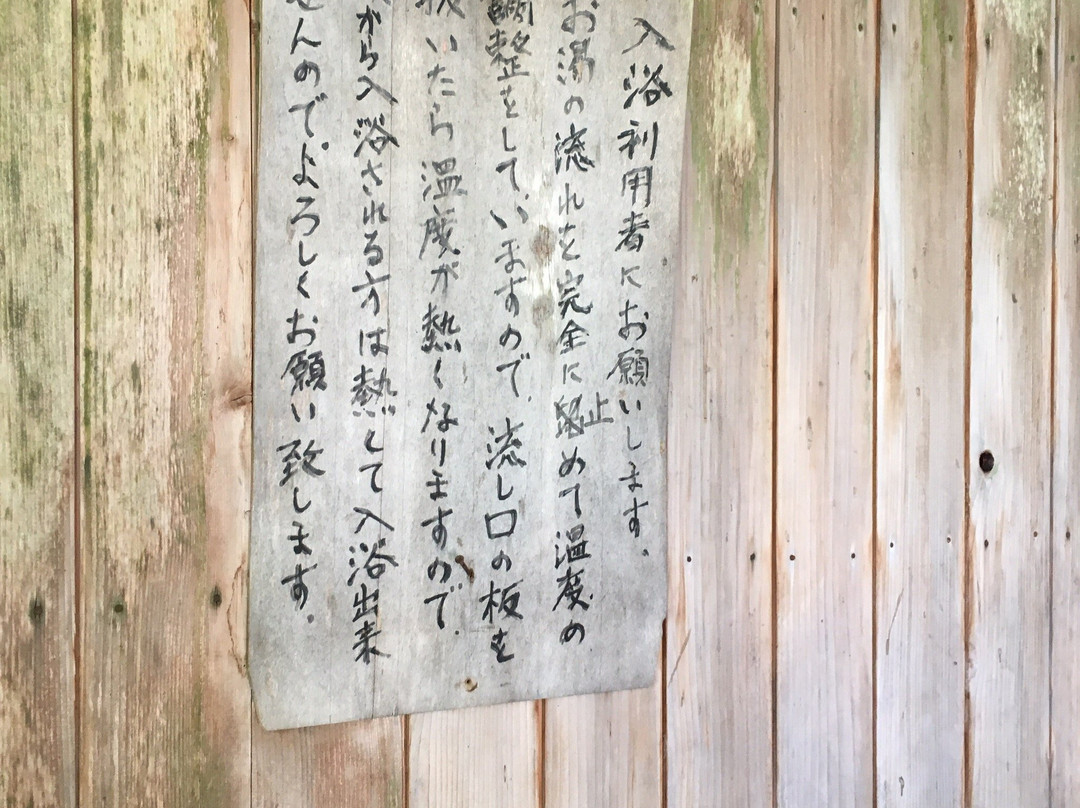 入浴利用者にお願いします。
お湯の流れを完全に止めて温度の
調整をしていますので、流し口の板を
抜いたら温度が熱くなりますので、
がら入浴される方は熱くて入浴出来
せんのでよろしくお願い致します。